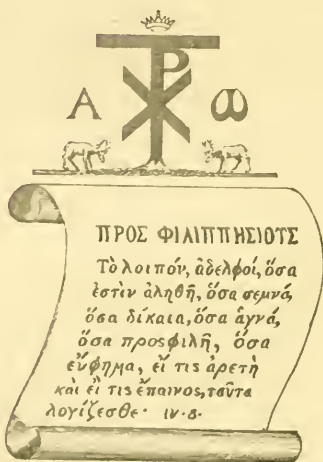 Α Ρ Ω
ΠΡΟΣ ΦΙΛΙΠΠΗΣΙΟΤΣ
Τὸ λοιπόν, ἀδελφοί, ὅσα
ἐστὶν ἀληθῆ, ὅσα σεμνά,
ὅσα δίκαια, ὅσα ἁγνά,
ὅσα προσφιλῆ, ὅσα
εὔφημα, εἴ τις ἀρετὴ
καὶ εἴ τις ἔπαινος, ταῦτα
λογίζεσθε· IV. 8.